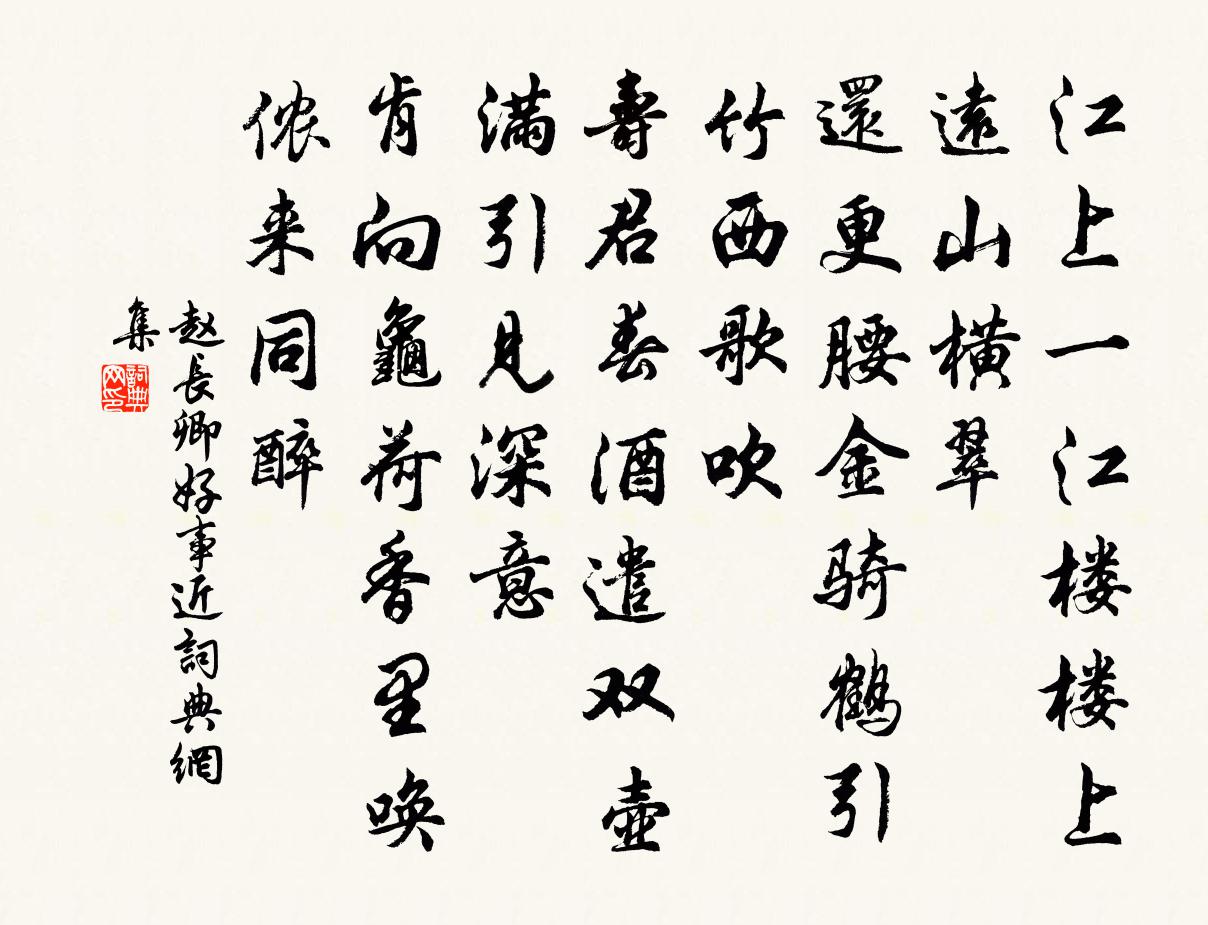 江上一江楼楼上
遠山横翠
還更腰金骑鹤引
竹西歌吹
壽君春酒遣双壶
满引見深意
肯向龜荷香里唤
侬来同醉
赵長卿好事近詞典網
集
詞典网印